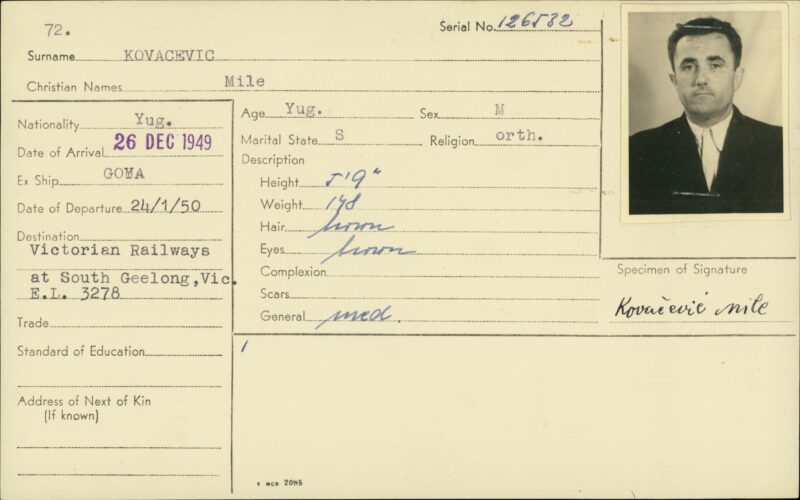 72.
Serial No. 126532
Surname KOVACEVIC
Christian Names Mile
Nationality Yug.
Date of Arrival 26 DEC 1949
Ex Ship GOYA
Date of Departure 24/1/50
Destination
Victorian Railways
at South Geelong, Vic.
E.L. 3278
Trade
Standard of Education
Address of Next of Kin
(If known)
Age Yug. Sex M
Marital State S Religion orth.
Description
Height 5'9"
Weight 148
Hair brown
Eyes brown
Complexion
Scars
General med.
Specimen of Signature
Kovačević Mile
1
4 WCB 2085